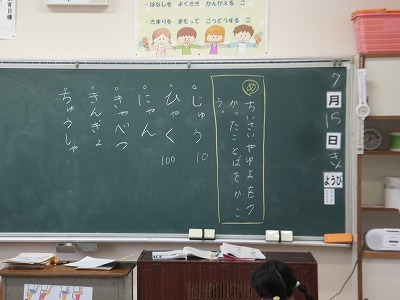 ・はなしを よくきき かんがえる こ
・きまりを まもって こうどうする こ
7月15日 きん ようび
め
ちいさいやゆよをつ
かったことばをかこ
う。
じゅう 10
ひゃく 100
にゃん
きゃべつ
きんぎょ
ちゅうしゃ